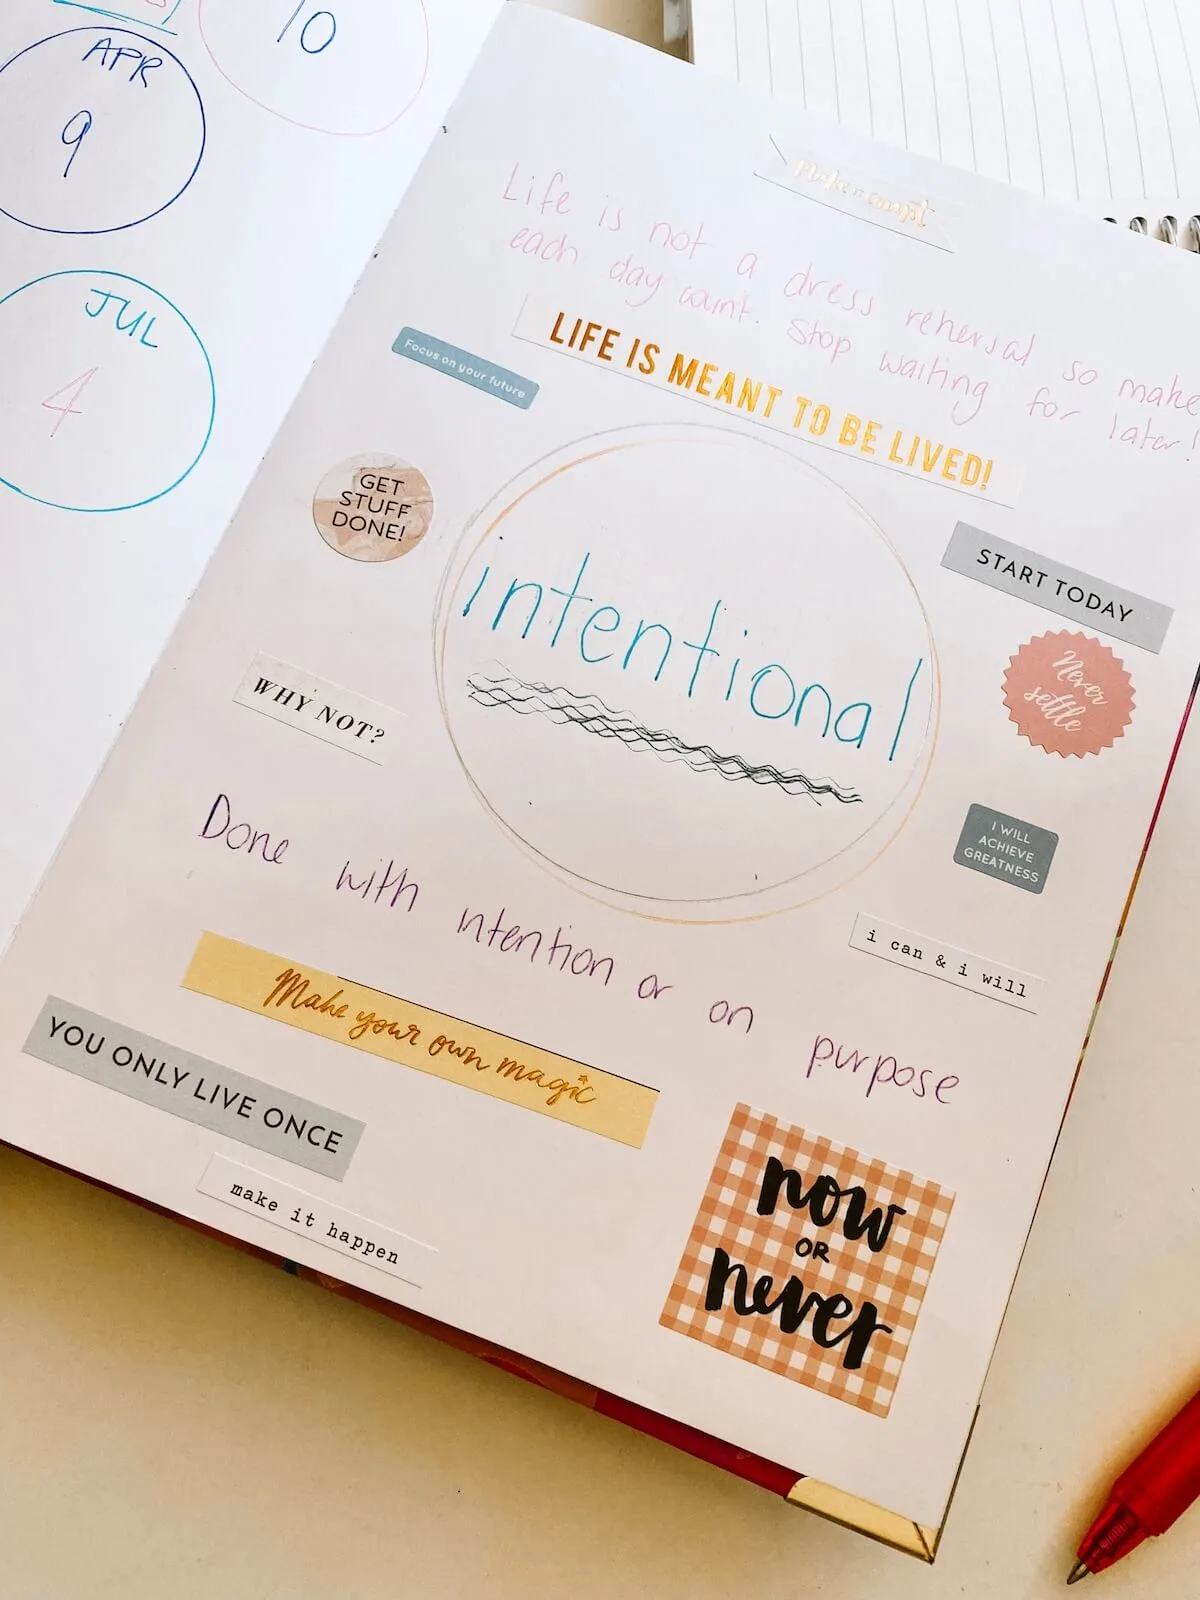 10
APR
9
JUL
4
Life is not a dress rehersal so make
each day count. Stop waiting for later!
LIFE IS MEANT TO BE LIVED!
Focus on your future
GET
STUFF
DONE!
intentional
START TODAY
Never
settle
WHY NOT?
I WILL
ACHIEVE
GREATNESS
Done with intention or on purpose
i can & i will
Make your own magic
YOU ONLY LIVE ONCE
make it happen
now
OR
never